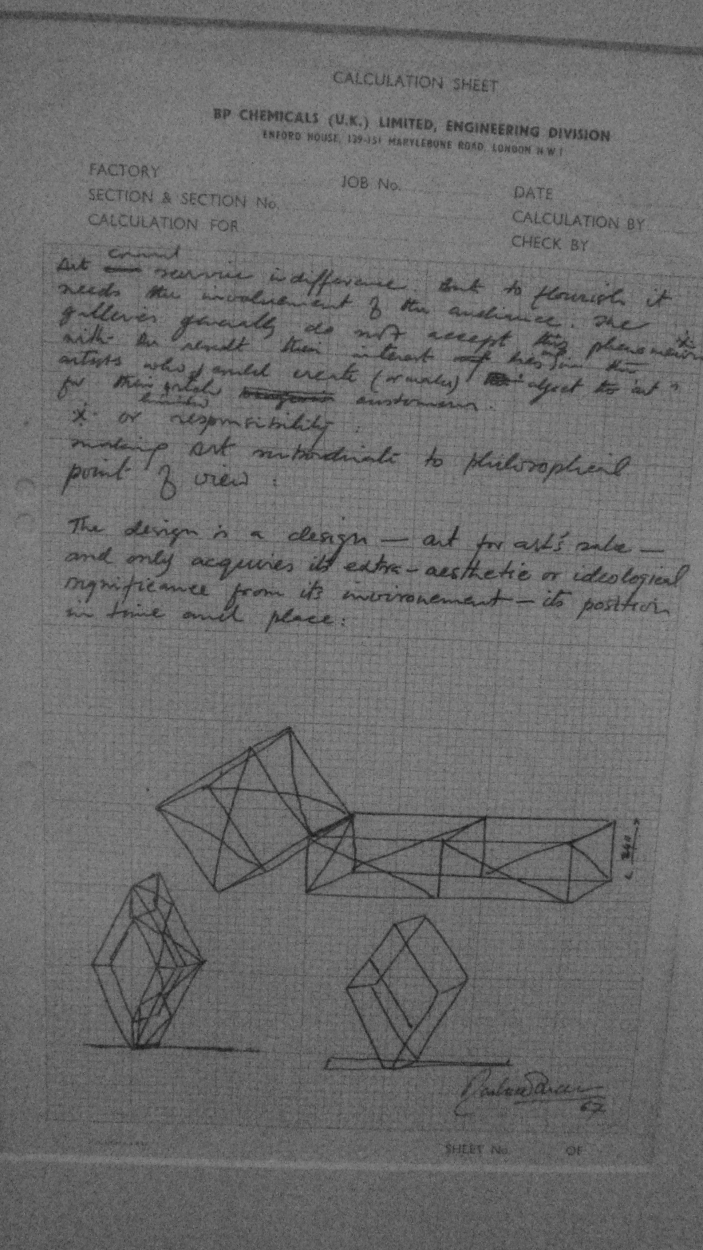 CALCULATION SHEET
BP CHEMICALS (U.K.) LIMITED, ENGINEERING DIVISION
ENFORD HOUSE, 139-151 MARYLEBONE ROAD, LONDON N.W.1
FACTORY JOB No. DATE
SECTION & SECTION No. CALCULATION BY
CALCULATION FOR CHECK BY
cannot
Art survive indifference. But to flourish it
needs the involvement of the audience. The
galleries generally do not accept this phenomenon
with the result their interest lies in the
artists who could create (or make) object the art
for their customers.
limited
* or responsibility:
making Art subordinate to philosophical
point of view:
The design is a design — art for art's sake —
and only acquires its extra-aesthetic or ideological
significance from its invironement — its position
in time and place:
67
SHEET No. OF